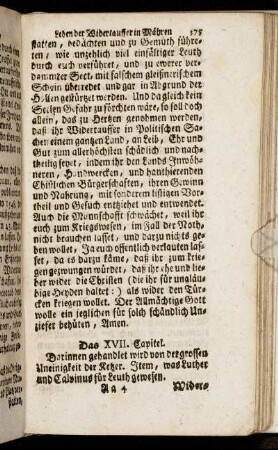 Leben der Widertauffer in Mähren 375
statten, bedächten und zu Gemüth führe-
ten, wie unzehlich viel einfältiger Leuth
durch euch verführet, und zu ewerer ver-
dammter Sect, mit falschem gleißnerischem
Schein überredet und gar in Abgrund der
Höllen gestürtzet werden. Und da gleich kein
Seelen Gefahr zu förchten wäre, so soll doch
allein, das zu Hertzen genohmen werden,
daß ihr Widertauffer in Politischen Sa-
chen einem gantzen Land, an Leib, Ehr und
Gut zum allerhöchsten schädlich und nach-
theilig seyet, indem ihr den Lands Inwoh-
neren, Handwercken, und hanthierenden
Christlichen Bürgerschafften, ihren Gewinn
und Nahrung, mit sonderem listigen Vor-
theil und Gesuch entziehet und entwendet.
Auch die Mannschafft schwächet, weil ihr
euch zum Kriegswesen, im Fall der Noth,
nicht brauchen lasset, und darzu nichts ge-
ben wollet. Ja euch öffentlich verlauten las-
set, da es darzu käme, daß ihr zum krie-
gen gezwungen würdet, daß ihr ehe und lie-
ber wider die Christen (die ihr für ungläu-
bige Heyden haltet:) als wider den Tür-
cken kriegen wollet. Der Allmächtige Gott
wolle ein jeglichen für solch schändlich Un-
ziefer behüten, Amen.
Das XVII. Capitel.
Darinnen gehandlet wird von der grossen
Uneinigkeit der Ketzer. Item, was Luther
und Calvinus für Leuth gewesen.
Aa 4 Wider-